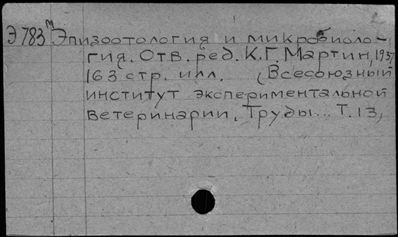 Э783м Эпизоотология и микробиоло-
гия. Отв. ред. К.Г. Мартин, 1937
163 стр. илл. (Всесоюзный
институт экспериментальной
ветеринарии. Труды... Т. 13,